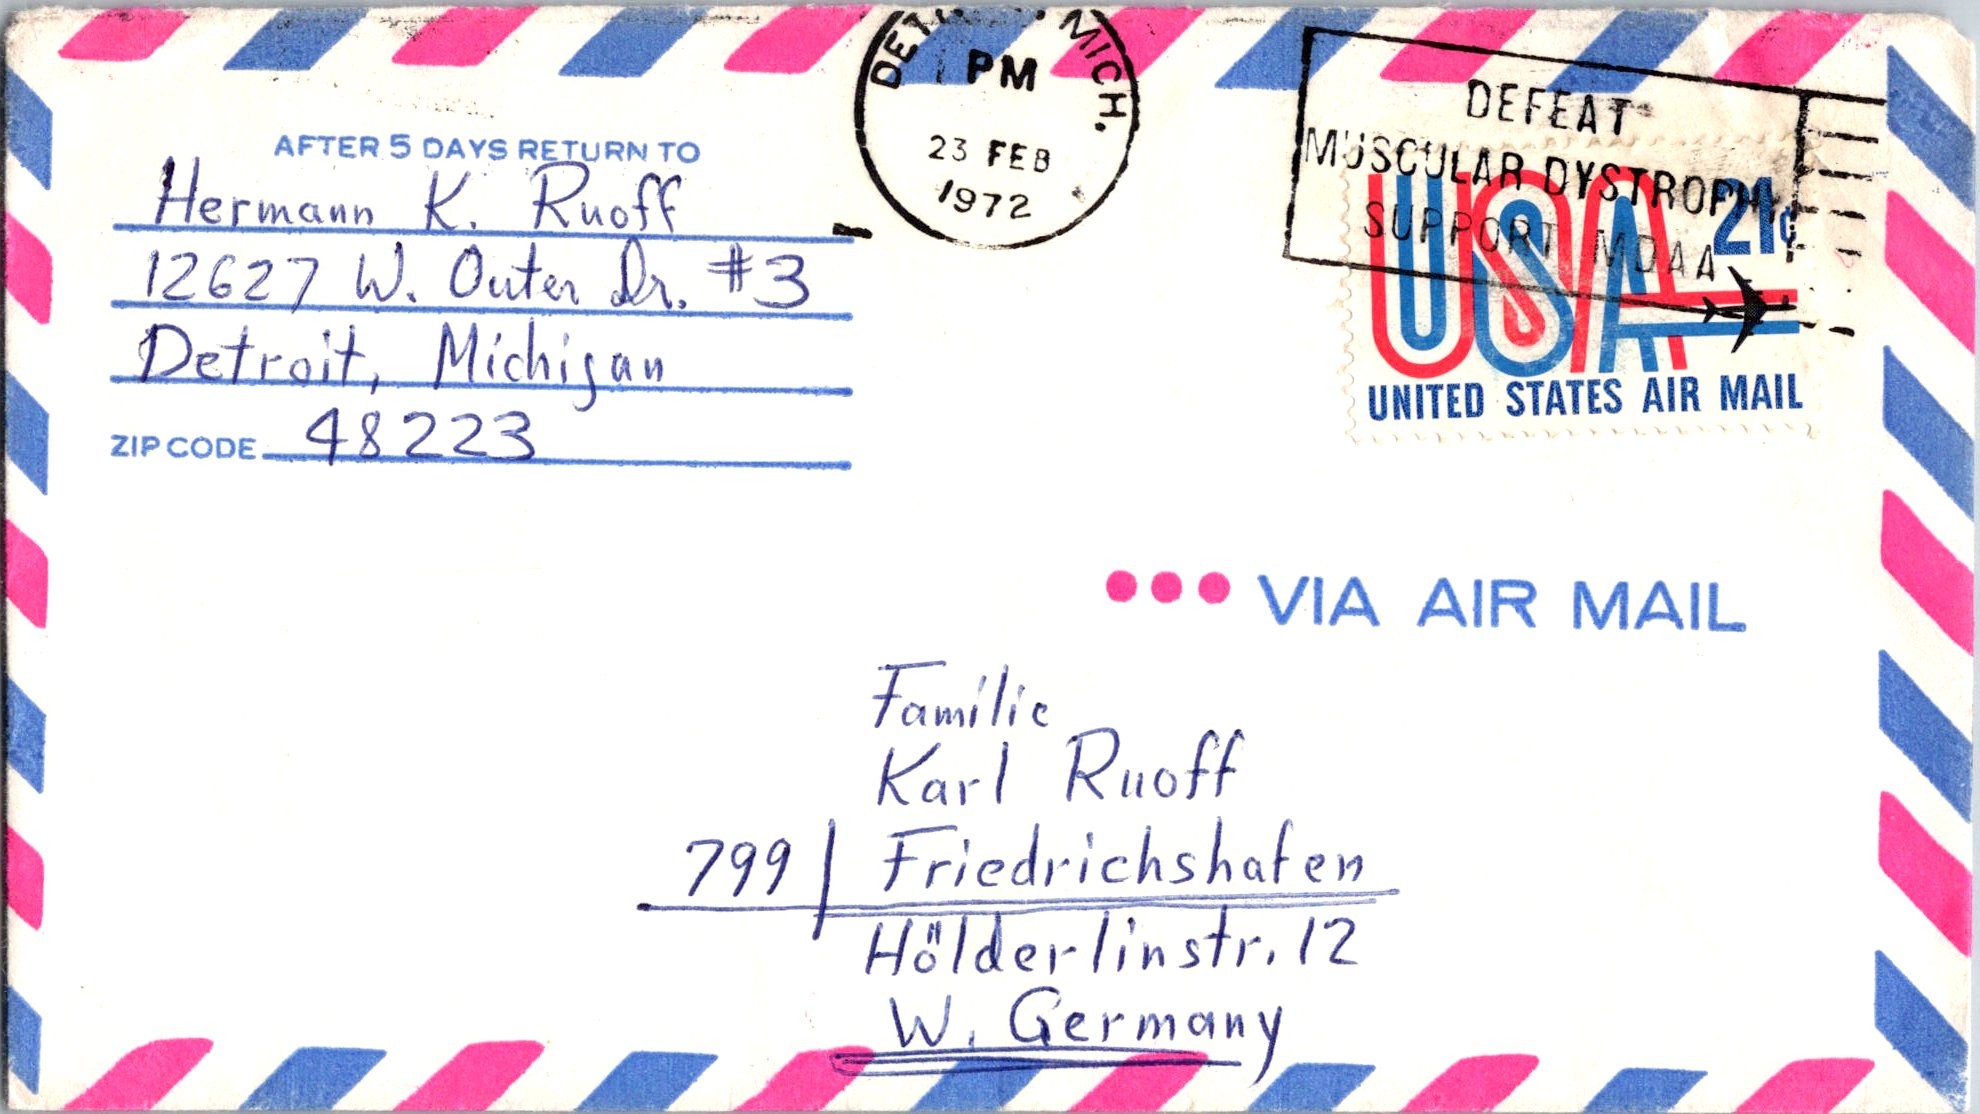 AFTER 5 DAYS RETURN TO
Hermann K. Ruoff
12627 W. Outer Dr. #3
Detroit, Michigan
ZIP CODE 48223
DETROIT, MICH.
PM
23 FEB
1972
DEFEAT
MUSCULAR DYSTROPHY
SUPPORT MDAA
USA 21¢
UNITED STATES AIR MAIL
VIA AIR MAIL
Familie
Karl Ruoff
799 | Friedrichshafen
Hölderlinstr. 12
W. Germany